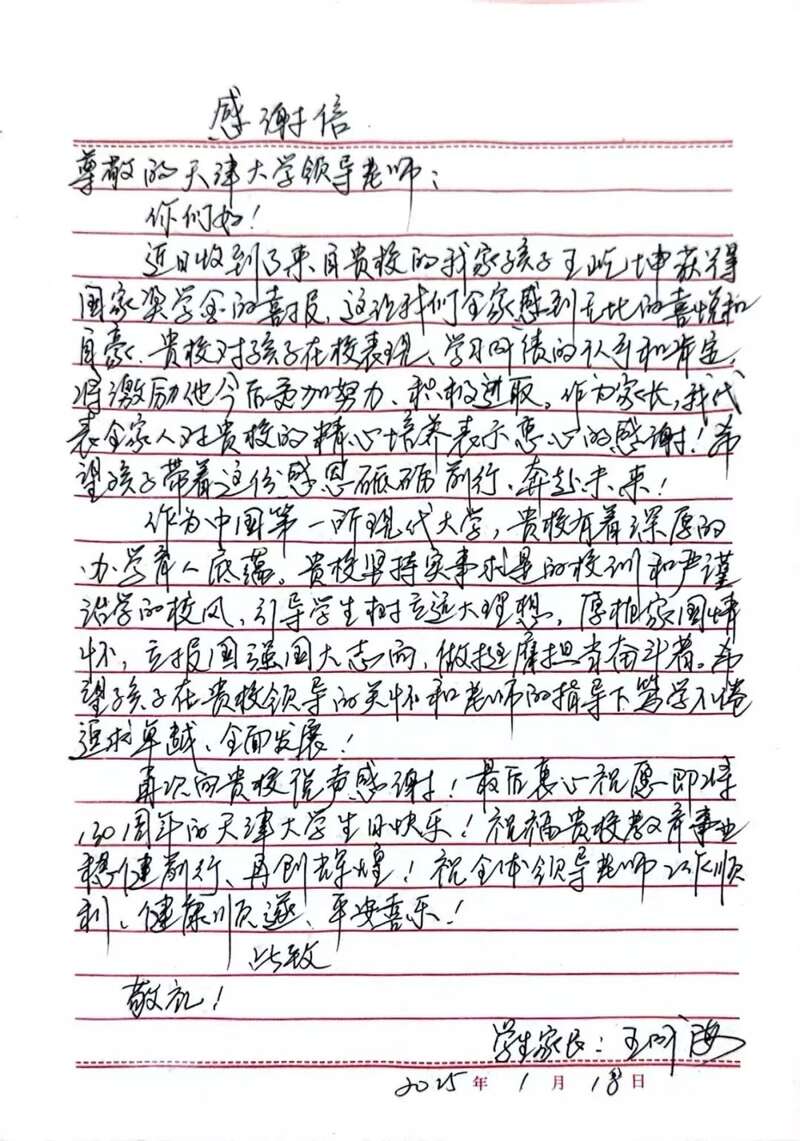 感谢信
尊敬的天津大学领导老师：
你们好！
近日收到了来自贵校的我家孩子王屹坤获得
国家奖学金的喜报，这让我们全家感到无比的喜悦和
自豪、贵校对孩子在校表现、学习成绩的认可和肯定，
将激励他今后更加努力、积极进取。作为家长，我代
表全家人对贵校的精心培养表示衷心的感谢！希
望孩子带着这份感恩砥砺前行、奔赴未来！
作为中国第一所现代大学，贵校有着深厚的
办学育人底蕴。贵校坚持实事求是的校训和严谨
治学的校风，引导学生树立远大理想，厚植家国情
怀，立报国强国大志向，做挺膺担当奋斗者。希
望孩子在贵校领导的关怀和老师的指导下笃学不倦
追求卓越、全面发展！
再次向贵校说声感谢！最后衷心祝愿即将
130周年的天津大学生日快乐！祝福贵校教育事业
稳健前行、再创辉煌！祝全体领导老师工作顺
利、健康顺遂、平安喜乐！
此致
敬礼！
学生家长：王
2025年1月18日